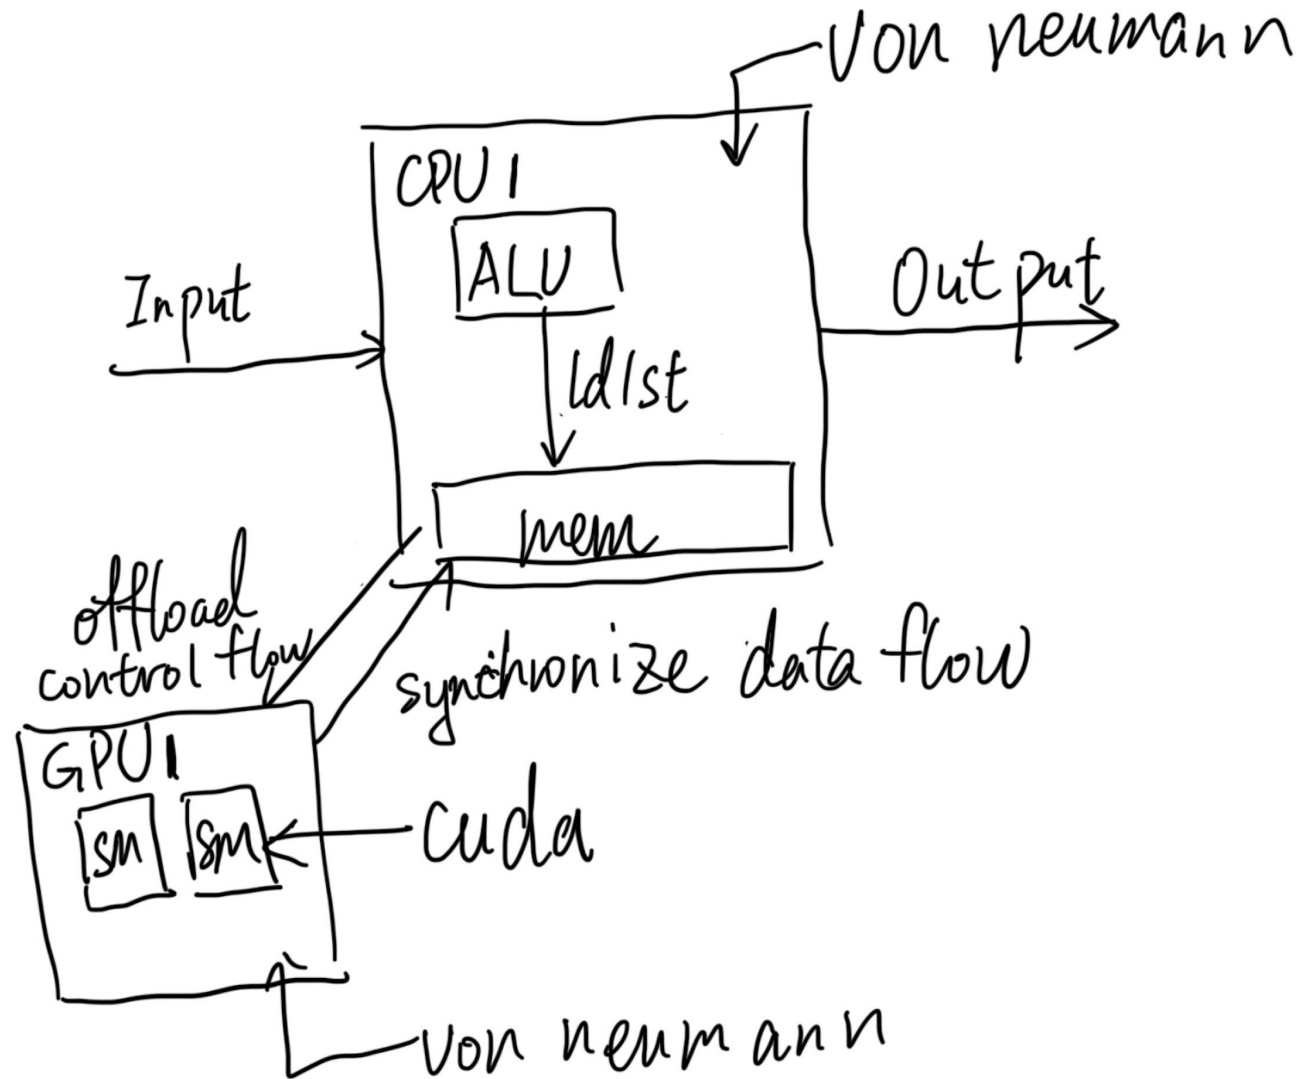 von neumann
CPU 1
ALU
Input
Output
ld/st
mem
offload
control flow
synchronize data flow
GPU 1
SM
SM
cuda
von neumann